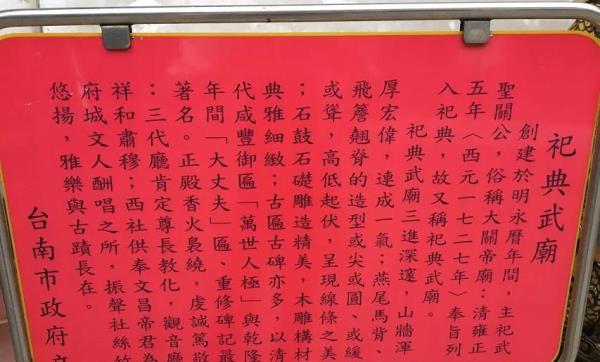 祀典武廟
創建於明永曆年間，主祀武
聖關公，俗稱大關帝廟；清雍正
五年〈西元一七二七年〉奉旨列
入祀典，故又稱祀典武廟。
祀典武廟三進深邃，山牆渾
厚宏偉，連成一氣；燕尾馬背、
飛簷翹脊的造型或尖或圓、或緩
或聳，高低起伏，呈現線條之美
；石鼓石礎雕造精美，木雕構材
典雅細緻；古匾古碑亦多，以清
代咸豐御匾「萬世人極」與乾隆
年間「大丈夫」匾、重修碑記最
著名。正殿香火裊繞，虔誠篤敬
：三代廳肯定尊長教化，觀音廳
祥和肅穆；西社供奉文昌帝君為
府城文人酬唱之所，振聲社絲竹
悠揚，雅樂與古蹟長在。
台南市政府